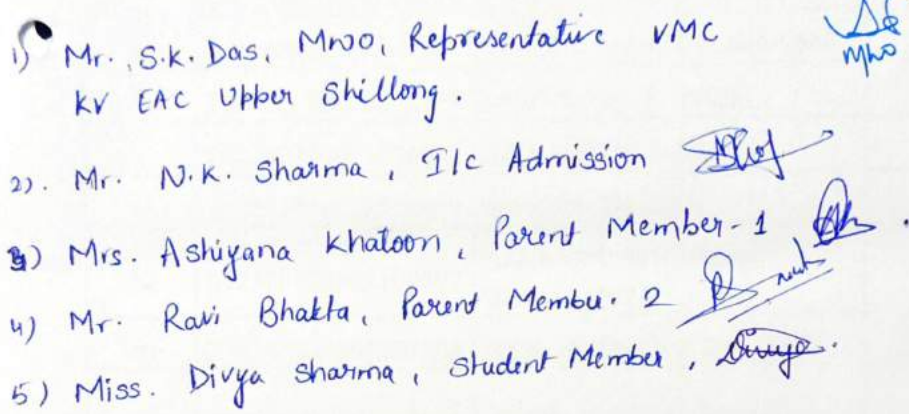 1) Mr. S.K. Das, MWO, Representative VMC
MWO
KV EAC Upper Shillong.
2). Mr. N.K. Sharma, I/C Admission
3) Mrs. Ashiyana Khatoon, Parent Member-1
4) Mr. Ravi Bhakta, Parent Member. 2
5) Miss. Divya Sharma, Student Member, Divya.